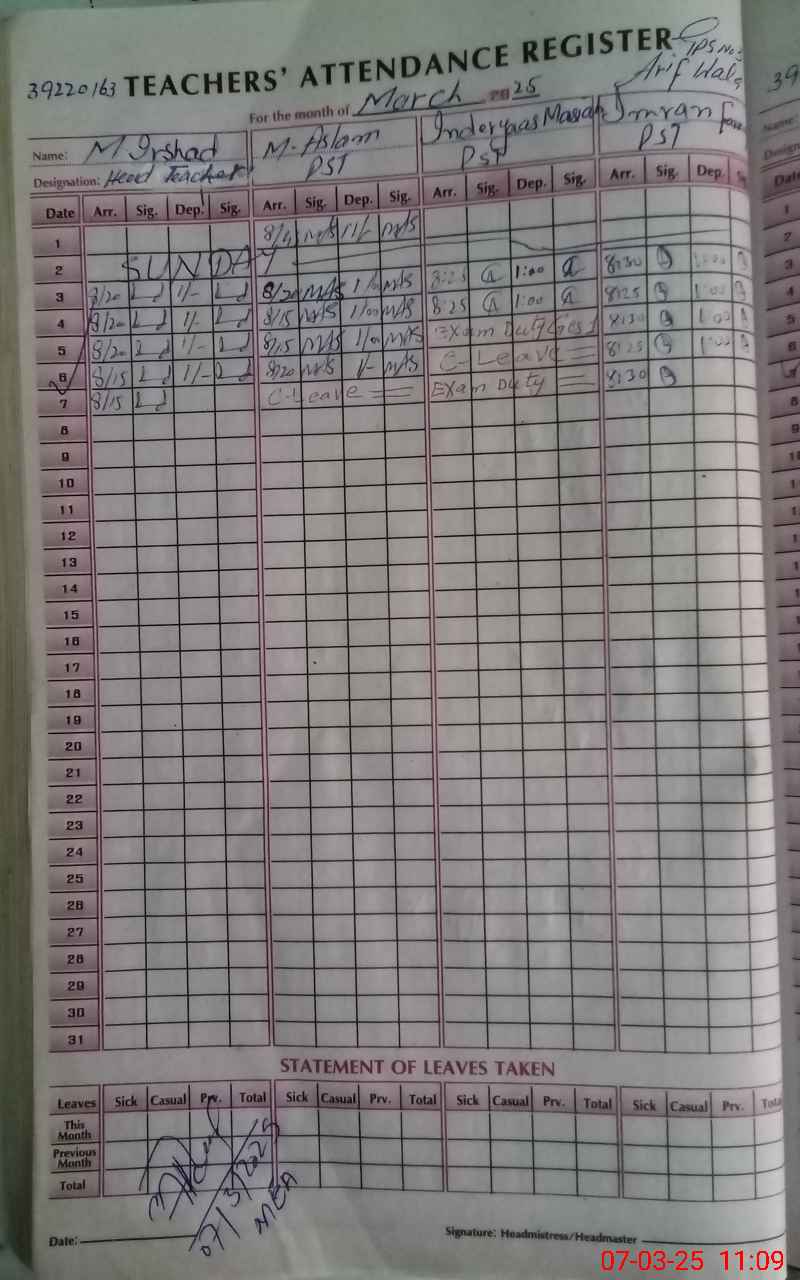 39220163 TEACHERS' ATTENDANCE REGISTER
Arif Wala
For the month of March 2025
Name: M Irshad M. Aslam Inderyaas Masiah Imran
Designation: Head Teacher PST PST PST
Date Arr. Sig. Dep. Sig. Arr. Sig. Dep. Sig. Arr. Sig. Dep. Sig. Arr. Sig. Dep.
1 M/S 11/- M/S
2 SUNDAY
3 8/20 1/- 8/20 M/S 1/00 M/S 8:25 1:00 8:30 1:00
4 8/20 1/- 8/15 M/S 1/00 M/S 8:25 1:00 8:25 1:00
5 8/20 1/- 8/15 M/S 1/00 M/S Exam Duty 8:30 1:00
6 8/15 1/- 8/20 M/S 1/- M/S C-Leave = 8:25 1:00
7 8/15 C-Leave = Exam Duty = 8:30
8
9
10
11
12
13
14
15
16
17
18
19
20
21
22
23
24
25
26
27
28
29
30
31
STATEMENT OF LEAVES TAKEN
Leaves Sick Casual Prv. Total Sick Casual Prv. Total Sick Casual Prv. Total Sick Casual Prv. Total
This Month
Previous Month
Total
07/3/2025
MEA
Date: Signature: Headmistress/Headmaster
07-03-25 11:09
39
Name:
Date
1
2
3
4
5
6
8
9